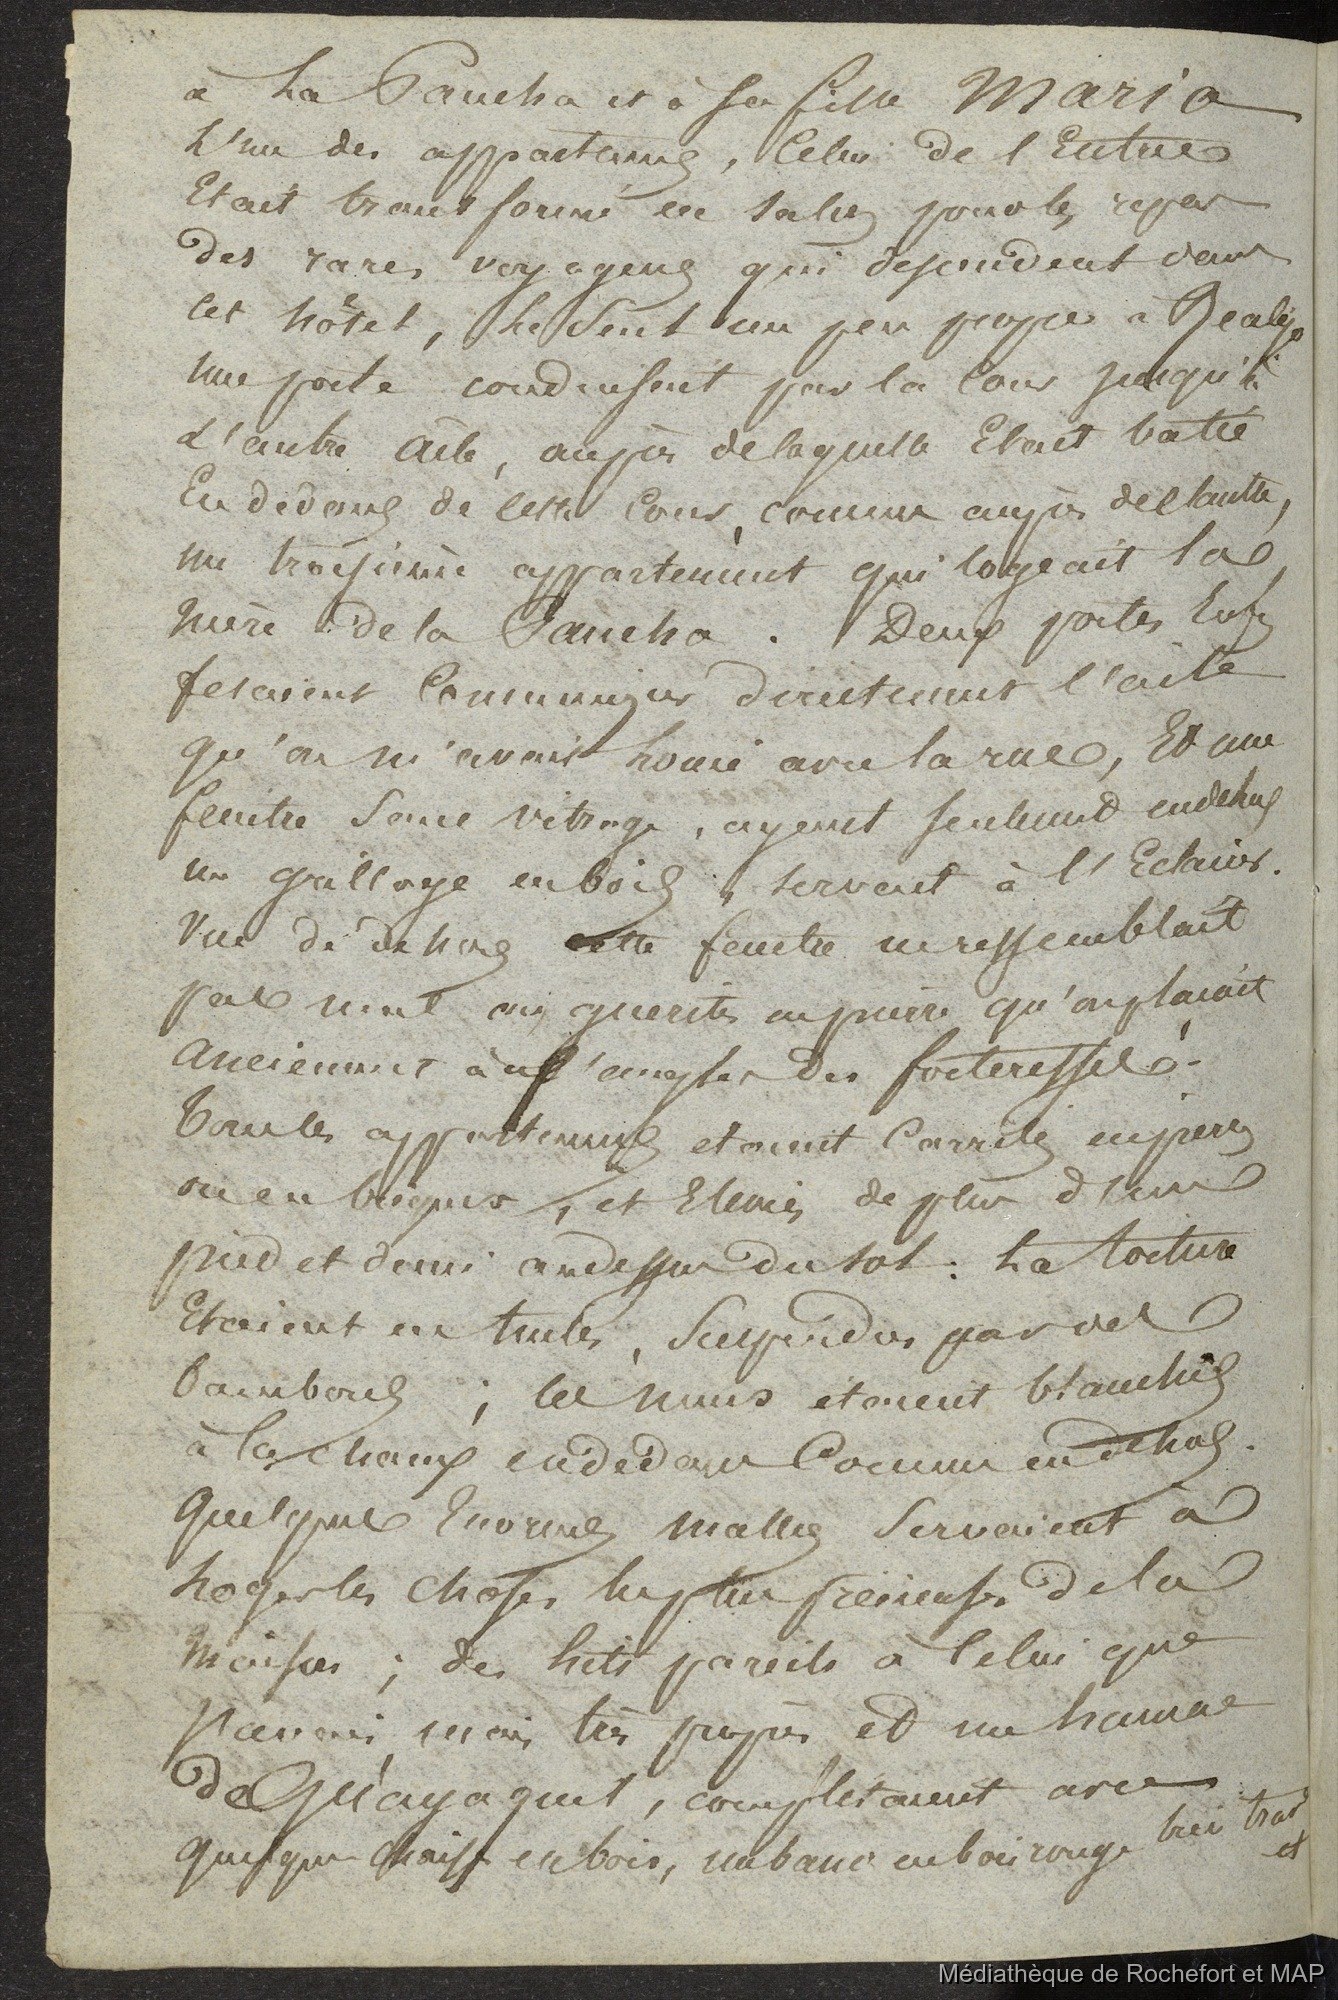 à la Pancha et à sa fille Maria
L'un des appartemens, celui de l'Entrée
Etait transformé en salles pour les repas
des rares voyageurs qui descendent dans
cet hôtel, le seul un peu propre à Realejo
une porte conduisait par la cour jusqu'à
l'autre aile, auprès de laquelle Etait batie
En dedans de cette cour, comme auprès de l'autre,
un troisième appartement qui logeait la
mère de la Pancha. Deux portes Enfin
fesaient communiquer directement l'aile
qu'on m'avait loué avec la rue, Et une
fenêtre sans vitrage, ayant seulement en dehors
un grillage en bois, servant à l'Eclairer.
Vue de dehors cette fenêtre ne ressemblait
pas mal aux guerites en pierre qu'on plaçait
anciennement à l'angles des forteresses.
Tous les appartemens etaient Carrelés en pierres
ou en briques, et Elevés de plus d'un
pied et demi au dessus du sol : la toiture
Etaient en tuiles, suspendues par des
bambous ; les murs etaient blanchis
à la chaux en dedans Comme en dehors.
Quelques Enormes malles servaient à
loger les choses les plus precieuses de la
maison ; des lits pareils à celui que
j'avais, mais très propres et un hamac
de Guayaquil, complètaient avec
quelques chaises en bois, un banc en bois rouge très
et
Médiathèque de Rochefort et MAP